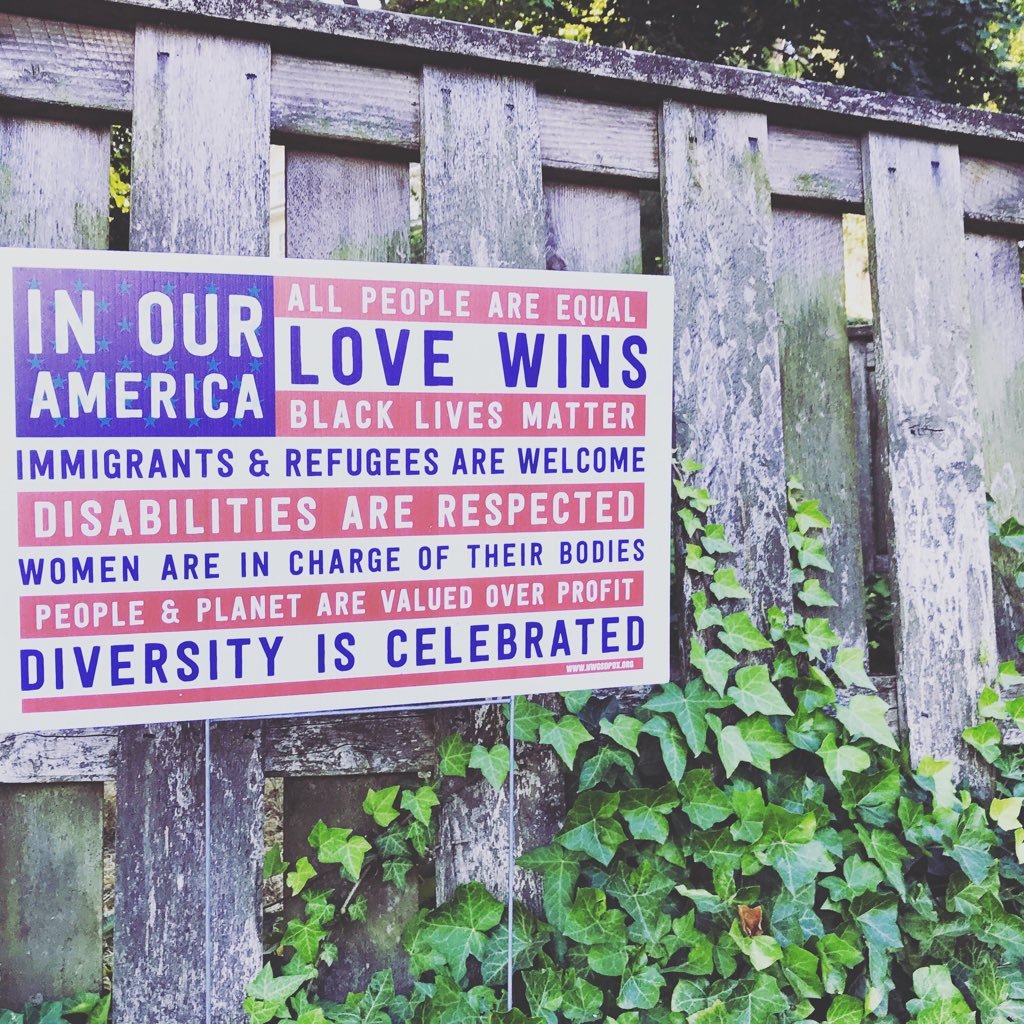 IN OUR
AMERICA
ALL PEOPLE ARE EQUAL
LOVE WINS
BLACK LIVES MATTER
IMMIGRANTS & REFUGEES ARE WELCOME
DISABILITIES ARE RESPECTED
WOMEN ARE IN CHARGE OF THEIR BODIES
PEOPLE & PLANET ARE VALUED OVER PROFIT
DIVERSITY IS CELEBRATED
WWW.NWGSDPDX.ORG